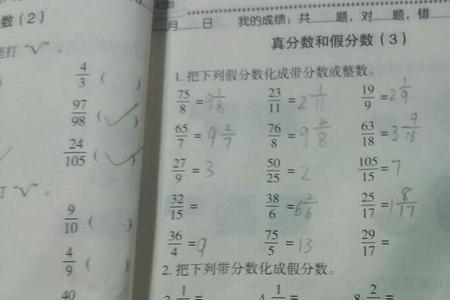 数(2)
里打“√”。
4/3 ( )
97/98 ( √
24/105 ( √
打“√”。
9/10 ( )
4/9 ( )
40
月 日 我的成绩：共 题，对 题，错
真分数和假分数(3)
1. 把下列假分数化成带分数或整数。
75/8 = 9 3/8 23/11 = 2 1/11 19/9 = 2 1/9
65/7 = 9 2/7 76/8 = 9 4/8 63/18 = 3 9/18
27/9 = 3 50/25 = 2 105/15 = 7
32/15 = 38/6 = 6 2/6 25/17 = 1 8/17
36/4 = 9 75/5 = 13 29/17 =
2. 把下列带分数化成假分数。